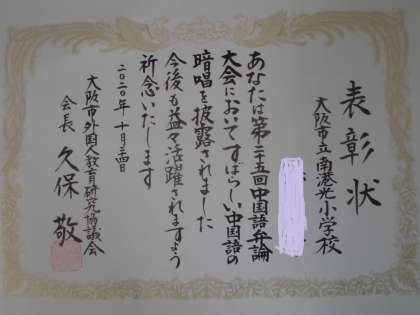 表彰状
大阪市立南港光小学校
あなたは第二十五回中国語弁論
大会においてすばらしい中国語の
暗唱を披露されました
今後も益々活躍されますよう
祈念いたします
二〇二〇年 十月二十四日
大阪市外国人教育研究協議会
会長 久保 敬